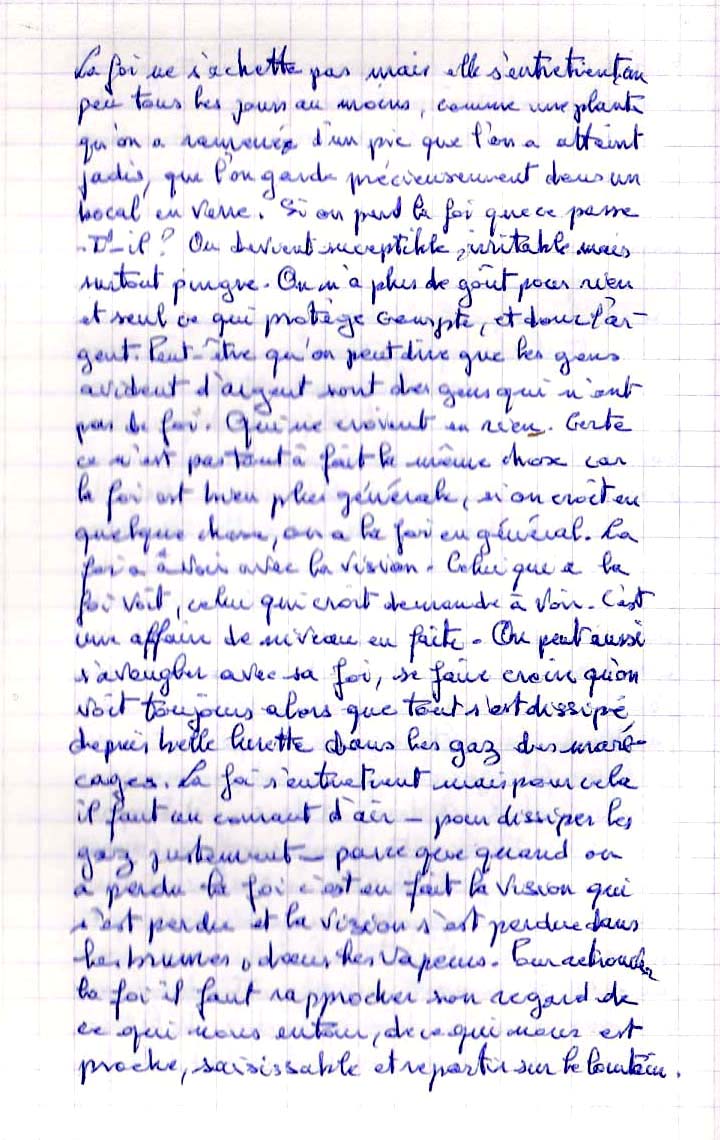 La foi ne s'achette pas mais elle s'entretient, un
peu tous les jours au moins, comme une plante
qu'on a ramenée d'un pic que l'on a atteint
jadis, que l'on garde précieusement dans un
bocal en verre. Si on perd la foi que ce passe
-T-il ? On devient suceptible, irritable mais
surtout pingre. On n'a plus de goût pour rien
et seul ce qui protège compte, et donc l'ar-
gent. Peut-être qu'on peut dire que les gens
avident d'argent sont des gens qui n'ont
pas de foi. Qui ne croivent en rien. Certe
ce n'est pas tout à fait la même chose car
la foi est bien plus générale, si on croit en
quelque chose, on a la foi en général. La
foi a à voir avec la vision. Celui que a la
foi voit, celui qui croit demande à voir. C'est
une affaire de niveau en faite. On peut aussi
s'aveugler avec sa foi, se faire croire qu'on
voit toujours alors que tout s'est dissipé
depuis belle lurette dans les gaz des maré-
cages. La foi s'entretient mais pour cela
il faut un courant d'air - pour dissiper les
gaz justement - parce que quand on
a perdu la foi c'est en fait la vision qui
s'est perdu et la vision s'est perdue dans
les brumes, dans les vapeurs. Pour retrouver
la foi il faut rapprocher son regard de
ce qui nous entour, de ce qui nous est
proche, saisissable et repartir sur le lointain.